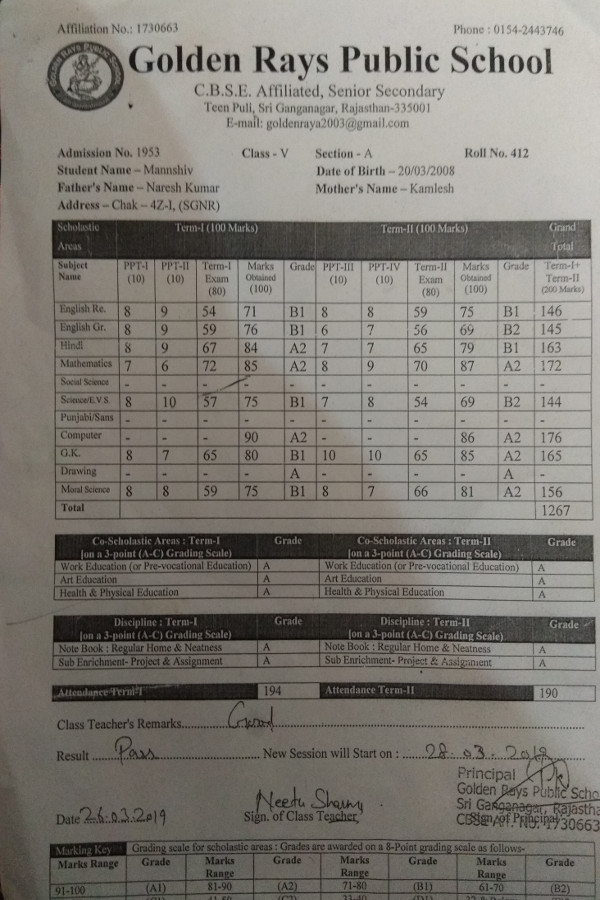 Affiliation No.: 1730663 Phone : 0154-2443746
GOLDEN RAYS PUBLIC SCHOOL
Golden Rays Public School
C.B.S.E. Affiliated, Senior Secondary
Teen Puli, Sri Ganganagar, Rajasthan-335001
E-mail: goldenraya2003@gmail.com
Admission No. 1953 Class - V Section - A Roll No. 412
Student Name – Mannshiv Date of Birth – 20/03/2008
Father's Name – Naresh Kumar Mother's Name – Kamlesh
Address – Chak – 4Z-I, (SGNR)
Scholastic Areas Term-I (100 Marks) Term-II (100 Marks) Grand Total
Subject Name PPT-I (10) PPT-II (10) Term-I Exam (80) Marks Obtained (100) Grade PPT-III (10) PPT-IV (10) Term-II Exam (80) Marks Obtained (100) Grade Term-I+ Term-II (200 Marks)
English Re. 8 9 54 71 B1 8 8 59 75 B1 146
English Gr. 8 9 59 76 B1 6 7 56 69 B2 145
Hindi 8 9 67 84 A2 7 7 65 79 B1 163
Mathematics 7 6 72 85 A2 8 9 70 87 A2 172
Social Science - - - - - - - - - - -
Science/E.V.S. 8 10 57 75 B1 7 8 54 69 B2 144
Punjabi/Sans - - - - - - - - - - -
Computer - - - 90 A2 - - - 86 A2 176
G.K. 8 7 65 80 B1 10 10 65 85 A2 165
Drawing - - - A - - - - A -
Moral Science 8 8 59 75 B1 8 7 66 81 A2 156
Total 1267
Co-Scholastic Areas : Term-I [on a 3-point (A-C) Grading Scale) Grade Co-Scholastic Areas : Term-II [on a 3-point (A-C) Grading Scale) Grade
Work Education (or Pre-vocational Education) A Work Education (or Pre-vocational Education) A
Art Education A Art Education A
Health & Physical Education A Health & Physical Education A
Discipline : Term-I [on a 3-point (A-C) Grading Scale) Grade Discipline : Term-II [on a 3-point (A-C) Grading Scale) Grade
Note Book : Regular Home & Neatness A Note Book : Regular Home & Neatness A
Sub Enrichment- Project & Assignment A Sub Enrichment- Project & Assignment A
Attendance Term-I 194 Attendance Term-II 190
Class Teacher's Remarks Good
Result Pass New Session will Start on : 28.03.2019
Principal
Golden Rays Public Scho
Sri Ganganagar, Rajastha
Date 26.03.2019 Neetu Sharma
Sign. of Class Teacher Sign. of Principal
CBSE Aff. No. 1730663
Marking Key Grading scale for scholastic areas : Grades are awarded on a 8-Point grading scale as follows-
Marks Range Grade Marks Range Grade Marks Range Grade Marks Range Grade
91-100 (A1) 81-90 (A2) 71-80 (B1) 61-70 (B2)